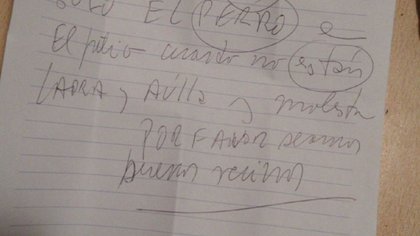 SOLO EL PERRO e
El patio cuando no están
LADRA y AÚLLA y molesta
POR FAVOR seamos
buenos vecinos